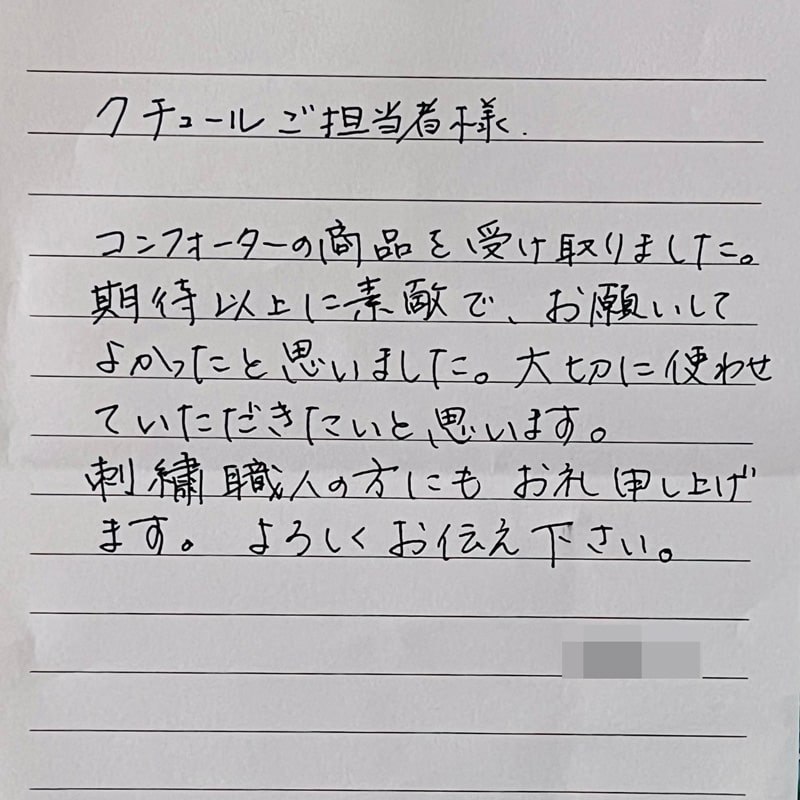 クチュールご担当者様.
コンフォーターの商品を受け取りました。
期待以上に素敵で、お願いして
よかったと思いました。大切に使わせ
ていただきたいと思います。
刺繍職人の方にもお礼申し上げ
ます。よろしくお伝え下さい。